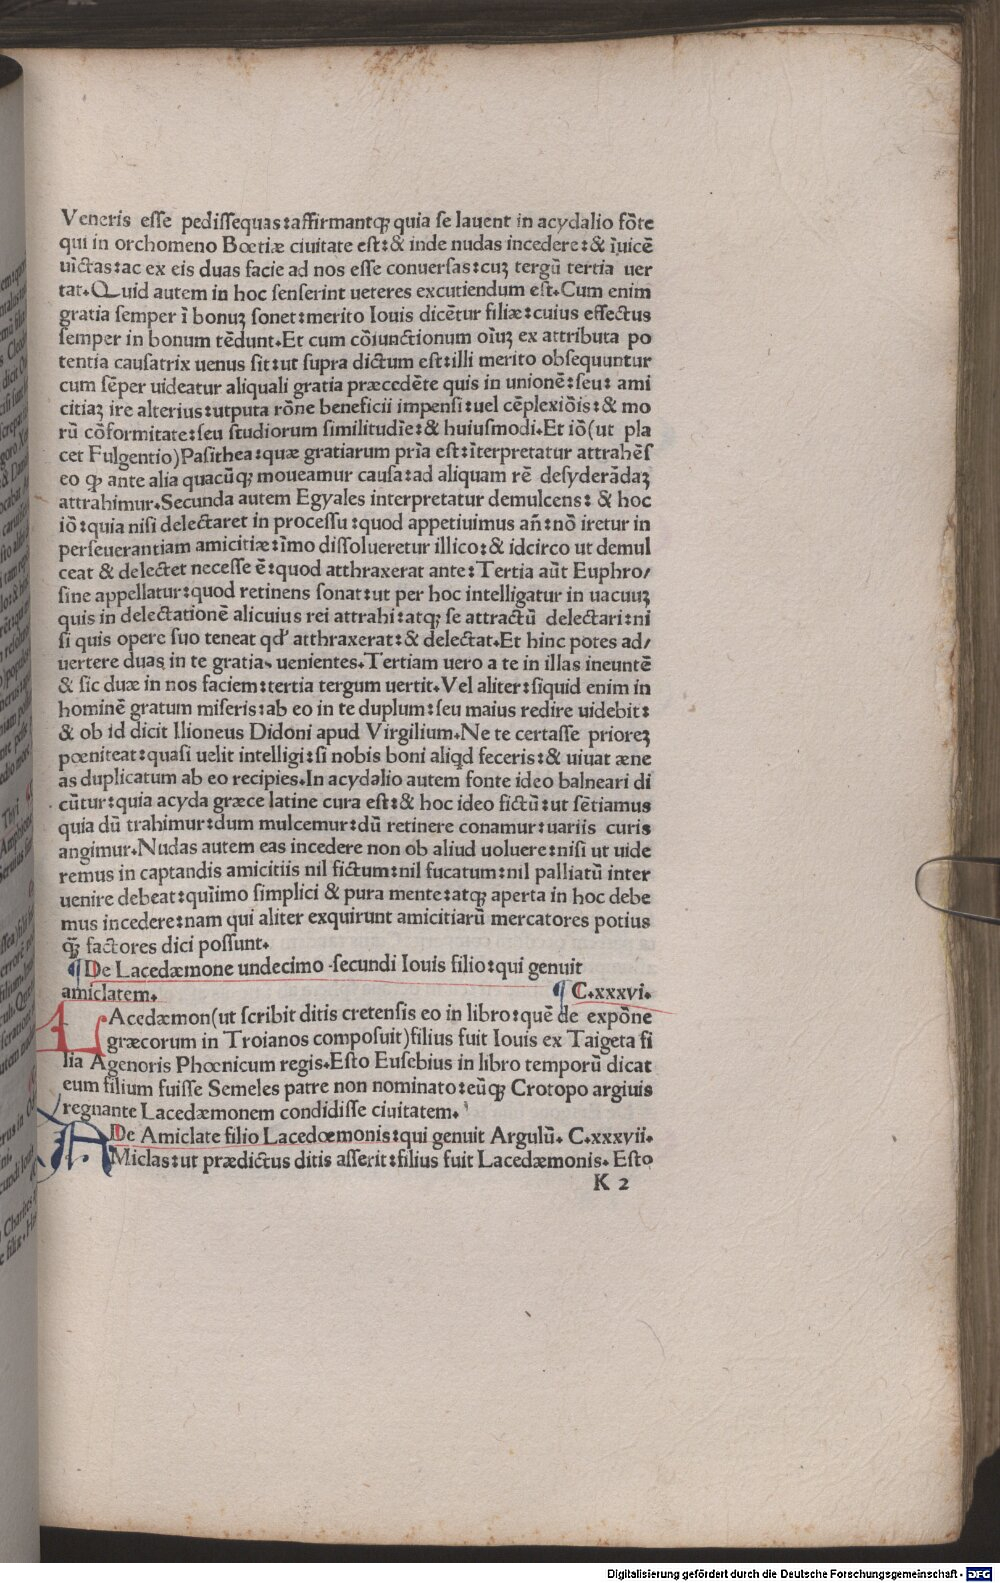 Veneris esse pedissequas:affirmantq; quia se lauent in acydalio fōte
qui in orchomeno Bœtiæ ciuitate est:& inde nudas incedere:& īuicē
uīctas:ac ex eis duas facie ad nos esse conuersas:cuꝫ tergū tertia uer
tat.Quid autem in hoc senserint ueteres excutiendum est.Cum enim
gratia semper ī bonuꝫ sonet:merito Iouis dicētur filiæ:cuius effectus
semper in bonum tēdunt.Et cum cōiunctionum oīuꝫ ex attributa po
tentia causatrix uenus sit:ut supra dictum est:illi merito obsequuntur
cum sēper uideatur aliquali gratia præcedēte quis in unionē:seu: ami
citiaꝫ ire alterius:utputa rōne beneficii impensi:uel cēplexiōis:& mo
rū cōformitate:seu studiorum similitudīe:& huiusmodi.Et iō(ut pla
cet Fulgentio)Pasithea:quæ gratiarum prīa est:īterpretatur attrahēs
eo ꝙ ante alia quacūq; moueamur causa:ad aliquam rē desyderādaꝫ
attrahimur.Secunda autem Egyales interpretatur demulcens: & hoc
iō:quia nisi delectaret in processu:quod appetiuimus añ:nō iretur in
perseuerantiam amicitiæ:īmo dissolueretur illico:& idcirco ut demul
ceat & delectet necesse ē:quod atthraxerat ante:Tertia aūt Euphro/
sine appellatur:quod retinens sonat:ut per hoc intelligatur in uacuuꝫ
quis in delectationē alicuius rei attrahi:atq; se attractū delectari:ni
si quis opere suo teneat qd' atthraxerat:& delectat.Et hinc potes ad/
uertere duas in te gratias uenientes.Tertiam uero a te in illas ineuntē
& sic duæ in nos faciem:tertia tergum uertit.Vel aliter:siquid enim in
hominē gratum miseris:ab eo in te duplum:seu maius redire uidebit:
& ob id dicit Ilioneus Didoni apud Virgilium.Ne te certasse prioreꝫ
pœniteat:quasi uelit intelligi:si nobis boni aliqd feceris:& uiuat æne
as duplicatum ab eo recipies.In acydalio autem fonte ideo balneari di
cūtur:quia acyda græce latine cura est:& hoc ideo fictū:ut sētiamus
quia dū trahimur:dum mulcemur:dū retinere conamur:uariis curis
angimur.Nudas autem eas incedere non ob aliud uoluere:nisi ut uide
remus in captandis amicitiis nil fictum:nil fucatum:nil palliatū inter
uenire debeat:quīimo simplici & pura mente:atq; aperta in hoc debe
mus incedere:nam qui aliter exquirunt amicitiarū mercatores potius
q̄ꝫ factores dici possunt.
¶De Lacedæmone undecimo secundi Iouis filio:qui genuit
amiclatem. ¶C.xxxvi.
LAcedæmon(ut scribit ditis cretensis eo in libro:quē de expōne
græcorum in Troianos composuit)filius fuit Iouis ex Taigeta fi
lia Agenoris Phœnicum regis.Esto Eusebius in libro temporū dicat
eum filium fuisse Semeles patre non nominato:eūq; Crotopo argiuis
regnante Lacedæmonem condidisse ciuitatem.
De Amiclate filio Lacedœmonis:qui genuit Argulū. C.xxxvii.
AMiclas:ut prædictus ditis asserit:filius fuit Lacedæmonis. Esto
K 2
Digitalisierung gefördert durch die Deutsche Forschungsgemeinschaft - DFG